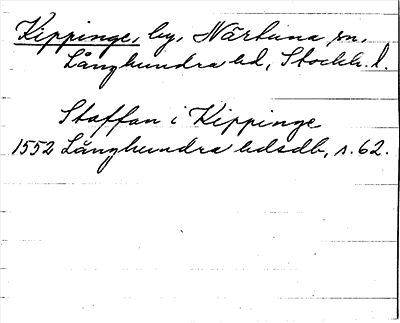 Kippinge, by, Närtuna sn,
Långhundra hd, Stockh. l.
Staffan i Kippinge
1552 Långhundra hdsdb, s. 62.